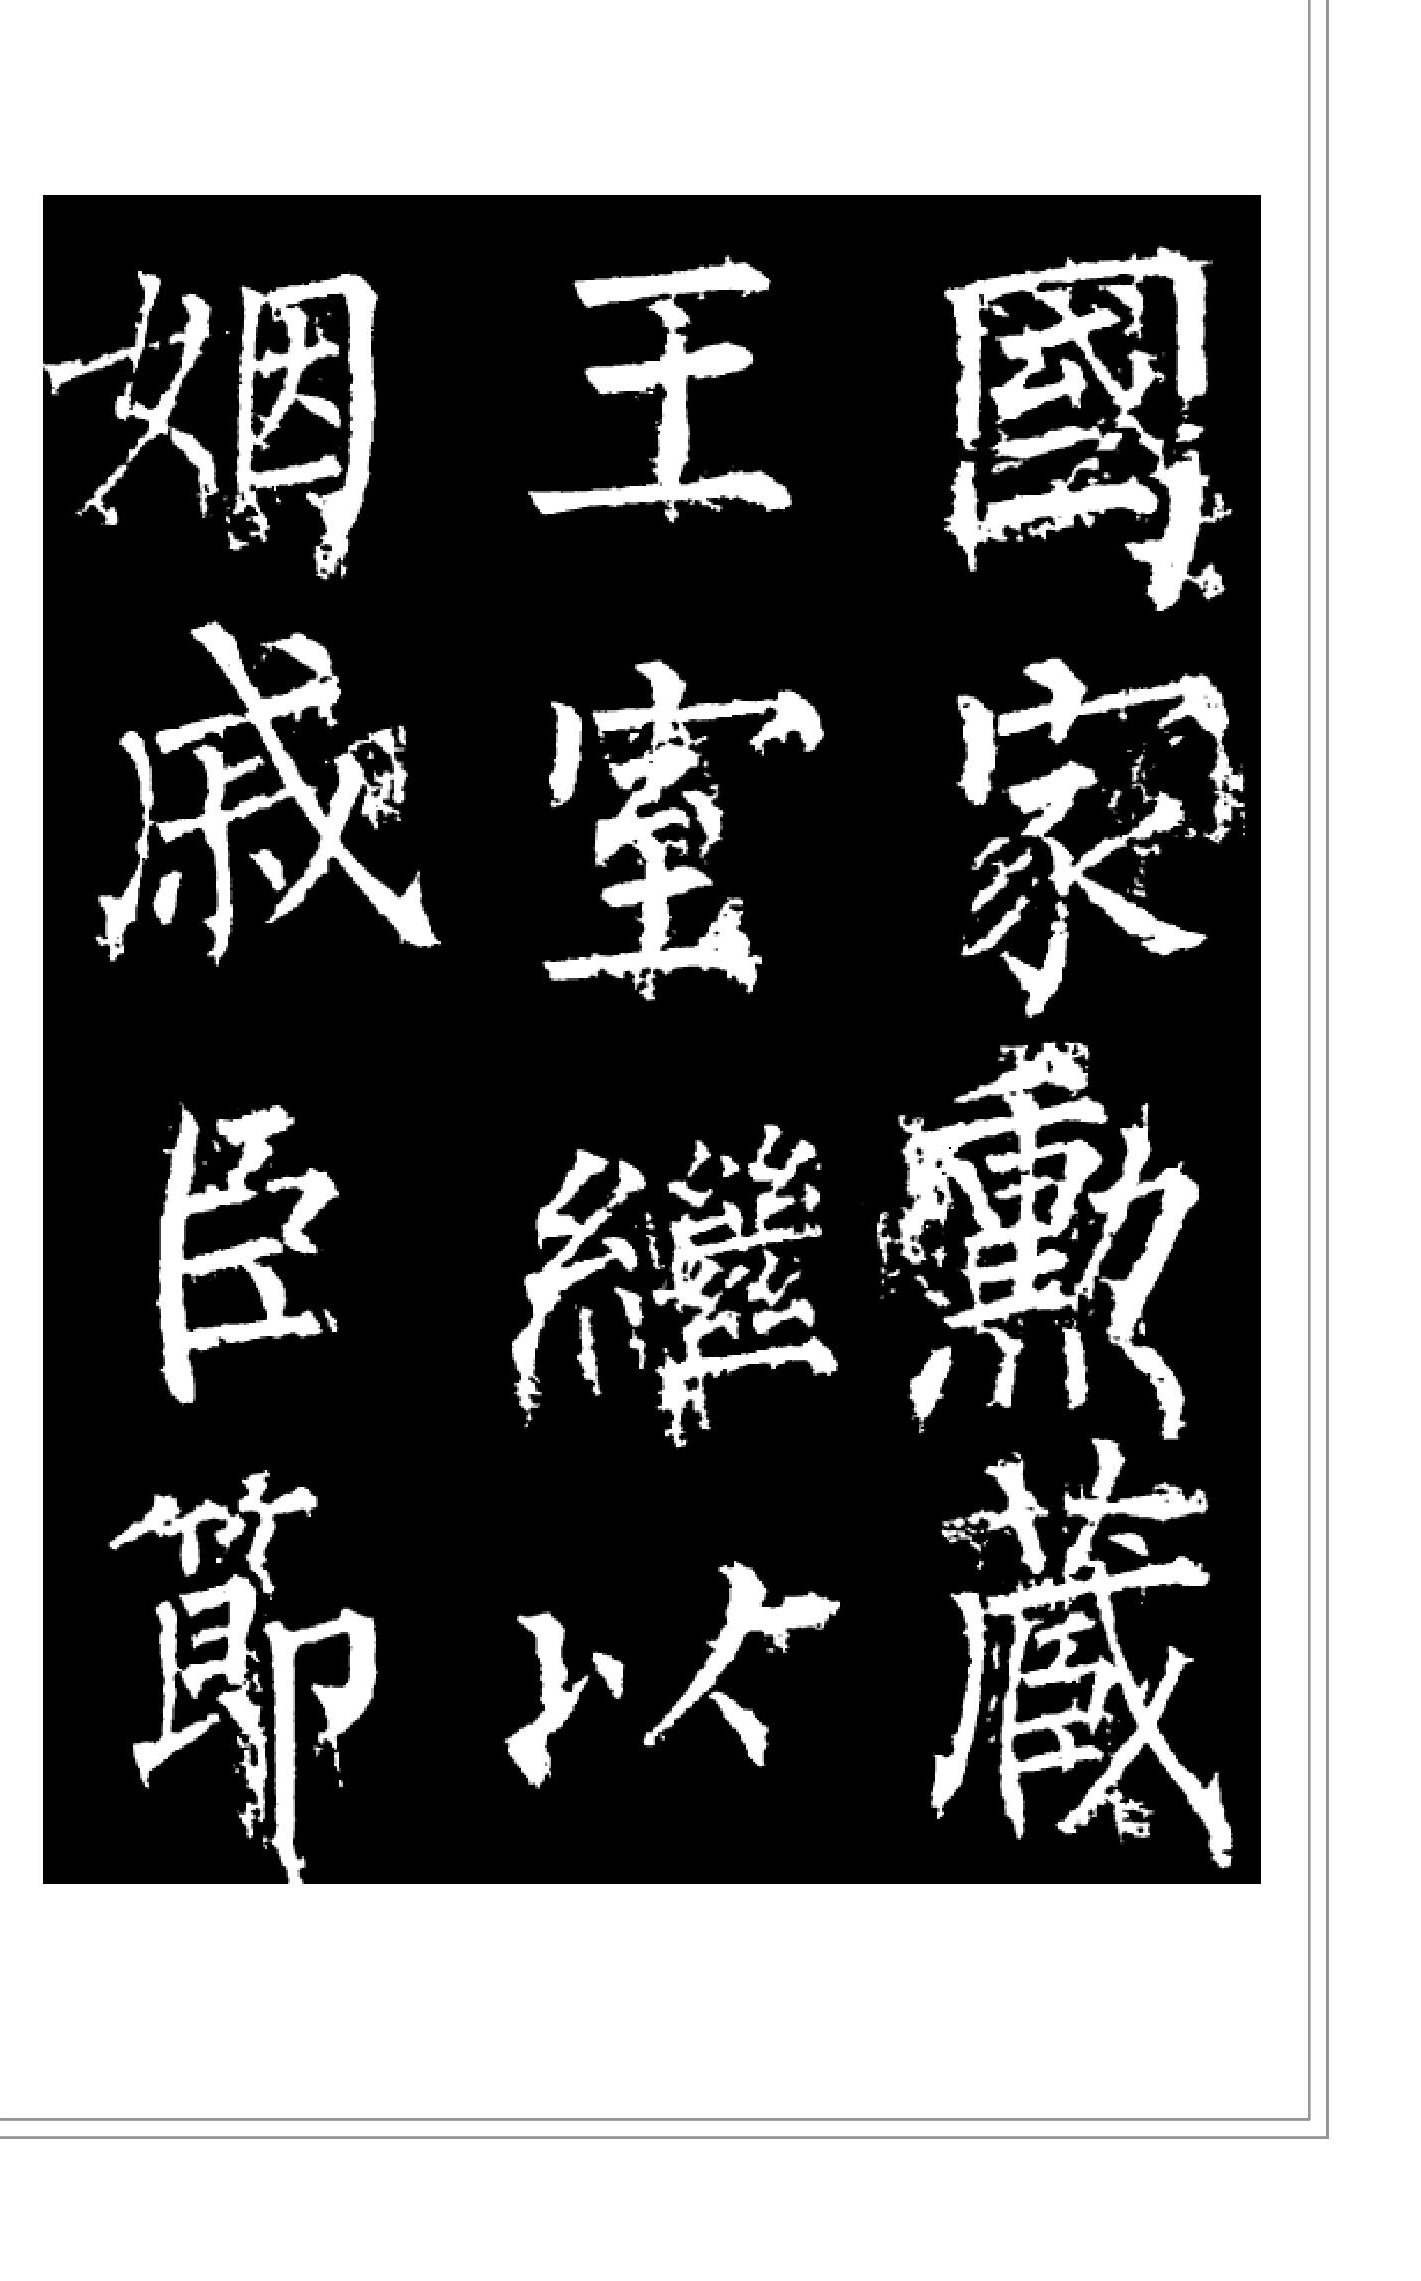 國家勳藏
王室繼以
姻戚臣節